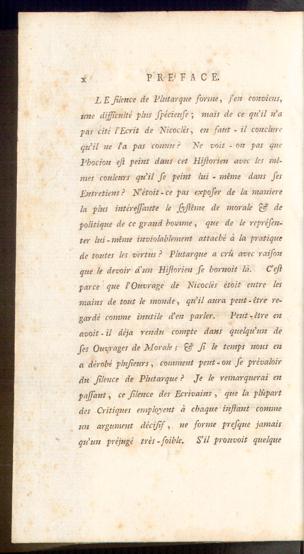 x PREFACE.
LE silence de Plutarque forme, j'en conviens,
une difficulté plus spécieuse; mais de ce qu'il n'a
pas cité l'Ecrit de Nicoclès, en faut-il conclure
qu'il ne l'a pas connu? Ne voit-on pas que
Phocion est peint dans cet Historien avec les mê-
mes couleurs qu'il se peint lui-même dans ses
Entretiens? N'étoit-ce pas exposer de la maniere
la plus intéressante le systême de morale & de
politique de ce grand homme, que de le représen-
ter lui-même inviolablement attaché à la pratique
de toutes les vertus? Plutarque a crû avec raison
que le devoir d'un Historien se bornoit là. C'est
parce que l'Ouvrage de Nicoclès étoit entre les
mains de tout le monde, qu'il aura peut-être re-
gardé comme inutile d'en parler. Peut-être en
avoit-il déja rendu compte dans quelqu'un de
ses Ouvrages de Morale: & si le temps nous en
a dérobé plusieurs, comment peut-on se prévaloir
du silence de Plutarque? Je le remarquerai en
passant, ce silence des Ecrivains, que la plûpart
des Critiques employent à chaque instant comme
un argument décisif, ne forme presque jamais
qu'un préjugé très-foible. S'il prouvoit quelque